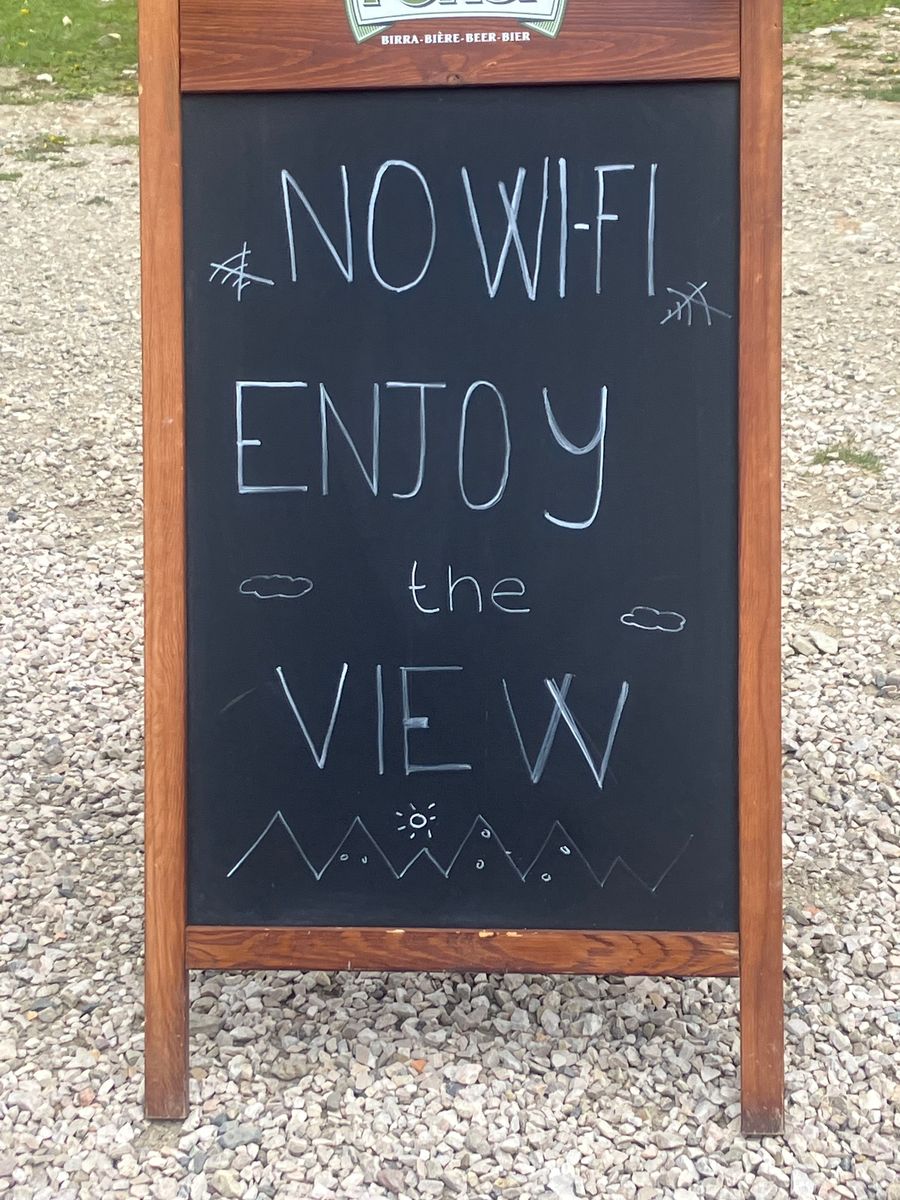 BIRRA-BIÈRE-BEER-BIER
NO WI-FI
ENJOY
the
VIEW